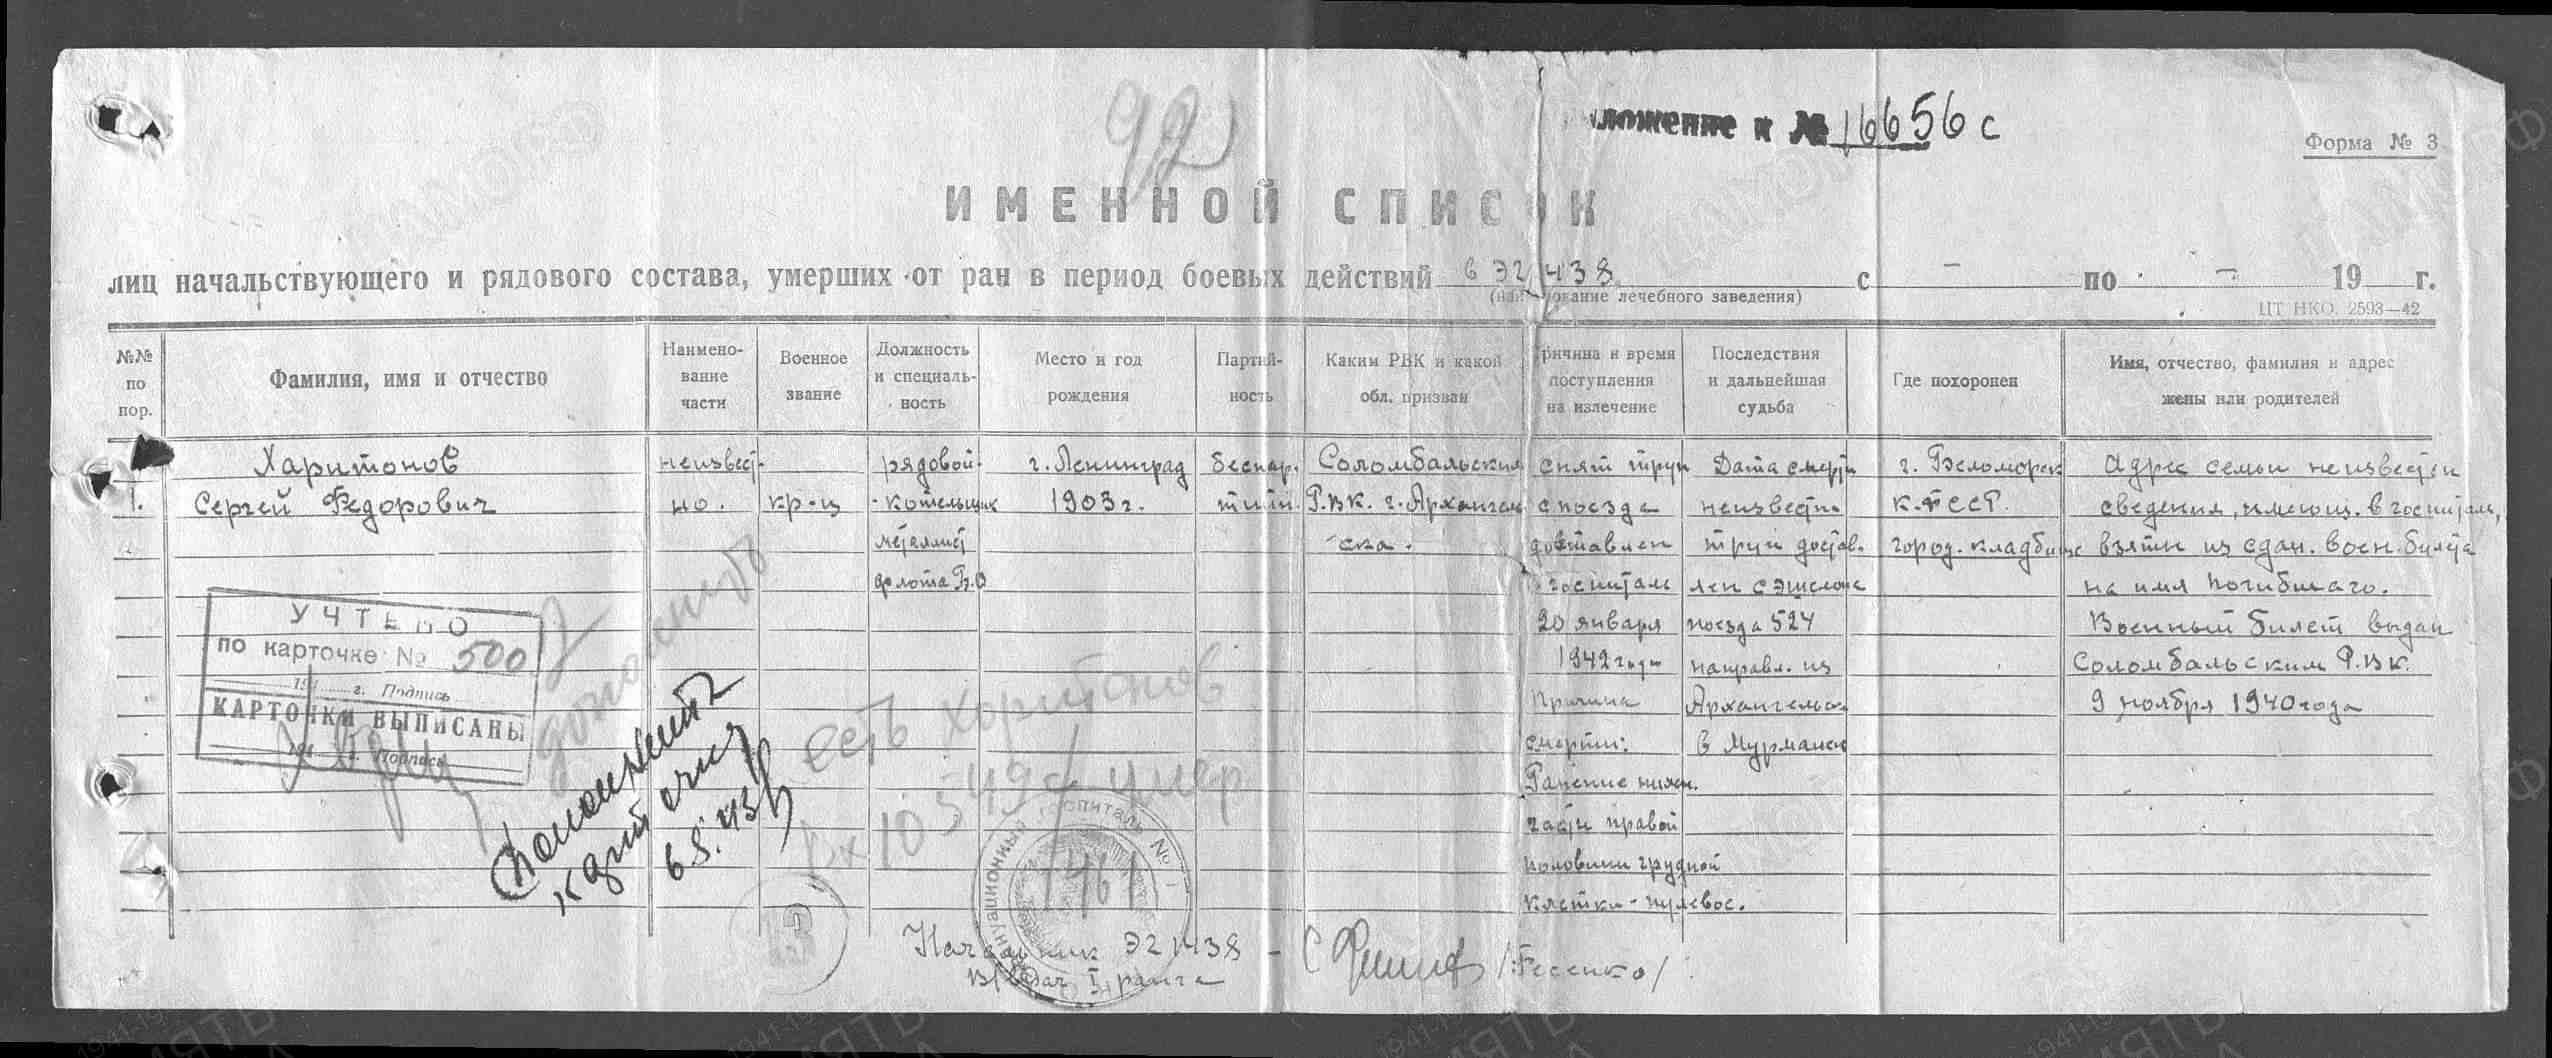 92
ложение к № 16656 с
Форма № 3
ИМЕННОЙ СПИСОК
лиц начальствующего и рядового состава, умерших от ран в период боевых действий в ЭГ 1438 с — по — 19 г.
(наименование лечебного заведения)
ЦТ НКО. 2593—42
№№ по пор.
Фамилия, имя и отчество
Наимено-
вание
части
Военное
звание
Должность
и специаль-
ность
Место и год
рождения
Партий-
ность
Каким РВК и какой
обл. призван
Причина и время
поступления
на излечение
Последствия
и дальнейшая
судьба
Где похоронен
Имя, отчество, фамилия и адрес
жены или родителей
1.
Харитонов
Сергей Федорович
неизвест-
но.
кр-ц
рядовой-
-котельщик
металлист
флота В.О
г. Ленинград
1903 г.
беспар.
тийн.
Соломбальский
Р.В.К. г. Архангель
ска.
снят труп
с поезда
доставлен
госпиталь
20 января
1942 года
Причина
смерти:
Ранение нижн.
части правой
половины грудной
клетки - пулевое.
Дата смерти
неизвестн
труп достав-
лен с эшелона
поезда 524
направл. из
Архангельск
в Мурманск
г. Беломорск
К-Ф ССР.
город. кладбище
Адрес семьи неизвестен
сведения, имеющ. в госпитале,
взяты из сдан. воен. билета
на имя погибшаго.
Военный билет выдан
Соломбальским Р.В.К.
9 ноября 1940 года
УЧТЕНО
по карточке № 500
194 г. Подпись
КАРТОЧКИ ВЫПИСАНЫ
194 г. Подпись
есть Харитонов
умер
Вх 10
1461
госпиталь №
Начальник ЭГ 1438 -
В/врач I ранга
/Фесенко/